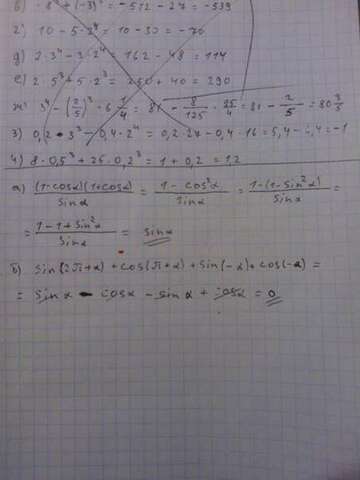 б) -8³ + (-3)³ = -512 - 27 = -539
г) 10 - 5·2⁴ = 10 - 80 = -70
д) 2·3⁴ - 3·2⁴ = 162 - 48 = 114
е) 2·5³ + 5·2³ = 250 + 40 = 290
ж) 3⁴ - (2/5)³ · 6 1/4 = 81 - 8/125 · 25/4 = 81 - 2/5 = 80 3/5
з) 0,2 · 3³ - 0,4·2⁴ = 0,2·27 - 0,4·16 = 5,4 - 6,4 = -1
4) 8·0,5³ + 25·0,2³ = 1 + 0,2 = 1,2
а) (1-cosα)(1+cosα)/sinα = 1-cos²α/sinα = 1-(1-sin²α)/sinα =
= 1-1+sin²α/sinα = sinα
б) sin(2π+α) + cos(π+α) + sin(-α) + cos(-α) =
= sinα - cosα - sinα + cosα = 0